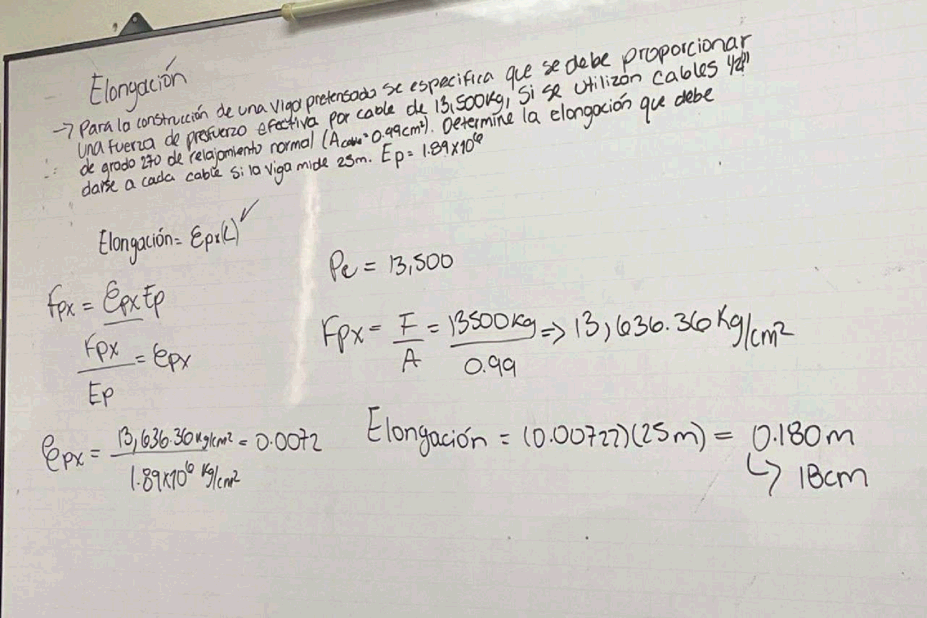 Elongación
→ Para la construcción de una viga pretensada se especifica que se debe proporcionar
una fuerza de presfuerzo efectiva por cable de 13,500kg, si se utilizan cables 1/2"
de grado 270 de relajamiento normal (Acable = 0.99cm²). Determine la elongación que debe
darse a cada cable si la viga mide 25m. Ep = 1.89x10⁶
Elongación = Ɛpx(L) ✓
Pe = 13,500
Fpx = Ɛpx Ep
Fpx / Ep = Ɛpx
Fpx = F / A = 13500kg / 0.99 => 13,636.36 Kg/cm²
Ɛpx = 13,636.36 kg/cm² / 1.89x10⁶ Kg/cm² = 0.0072
Elongación = (0.00722)(25m) = 0.180m
↳ 18cm